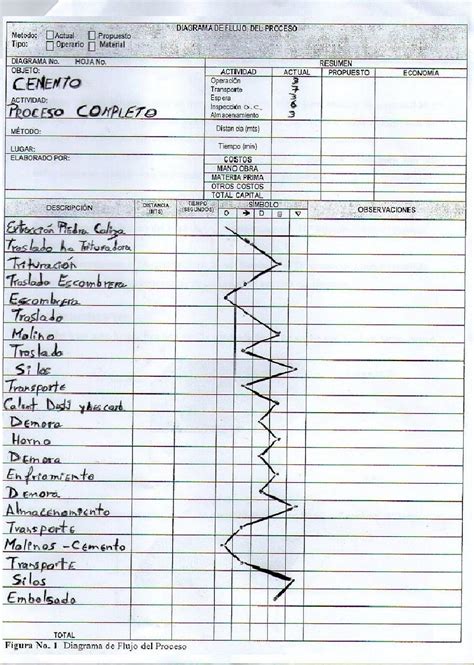 DIAGRAMA DE FLUJO DEL PROCESO
Metodo: Actual Propuesto
Tipo: Operario Material
DIAGRAMA No. HOJA No. RESUMEN
OBJETO: ACTIVIDAD ACTUAL PROPUESTO ECONOMÍA
CEMENTO Operación 3
Transporte 7
ACTIVIDAD: Espera 3
PROCESO COMPLETO Inspección O.C. 6
Almacenamiento 3
MÉTODO: Distancia (mts)
LUGAR: Tiempo (min)
ELABORADO POR: COSTOS
MANO OBRA
MATERIA PRIMA
OTROS COSTOS
TOTAL CAPITAL
DESCRIPCIÓN DISTANCIA (MTS) TIEMPO (SEGUNDOS) SÍMBOLO OBSERVACIONES
O ➔ D
Extracción Piedra Caliza
Traslado ha Trituradora
Trituración
Traslado Escombrera
Escombrera
Traslado
Molino
Traslado
Silos
Transporte
Demora
Horno
Demora
Enfriamiento
Demora
Almacenamiento
Transporte
Molinos - Cemento
Transporte
Silos
Embolsado
TOTAL
Figura No. 1 Diagrama de Flujo del Proceso